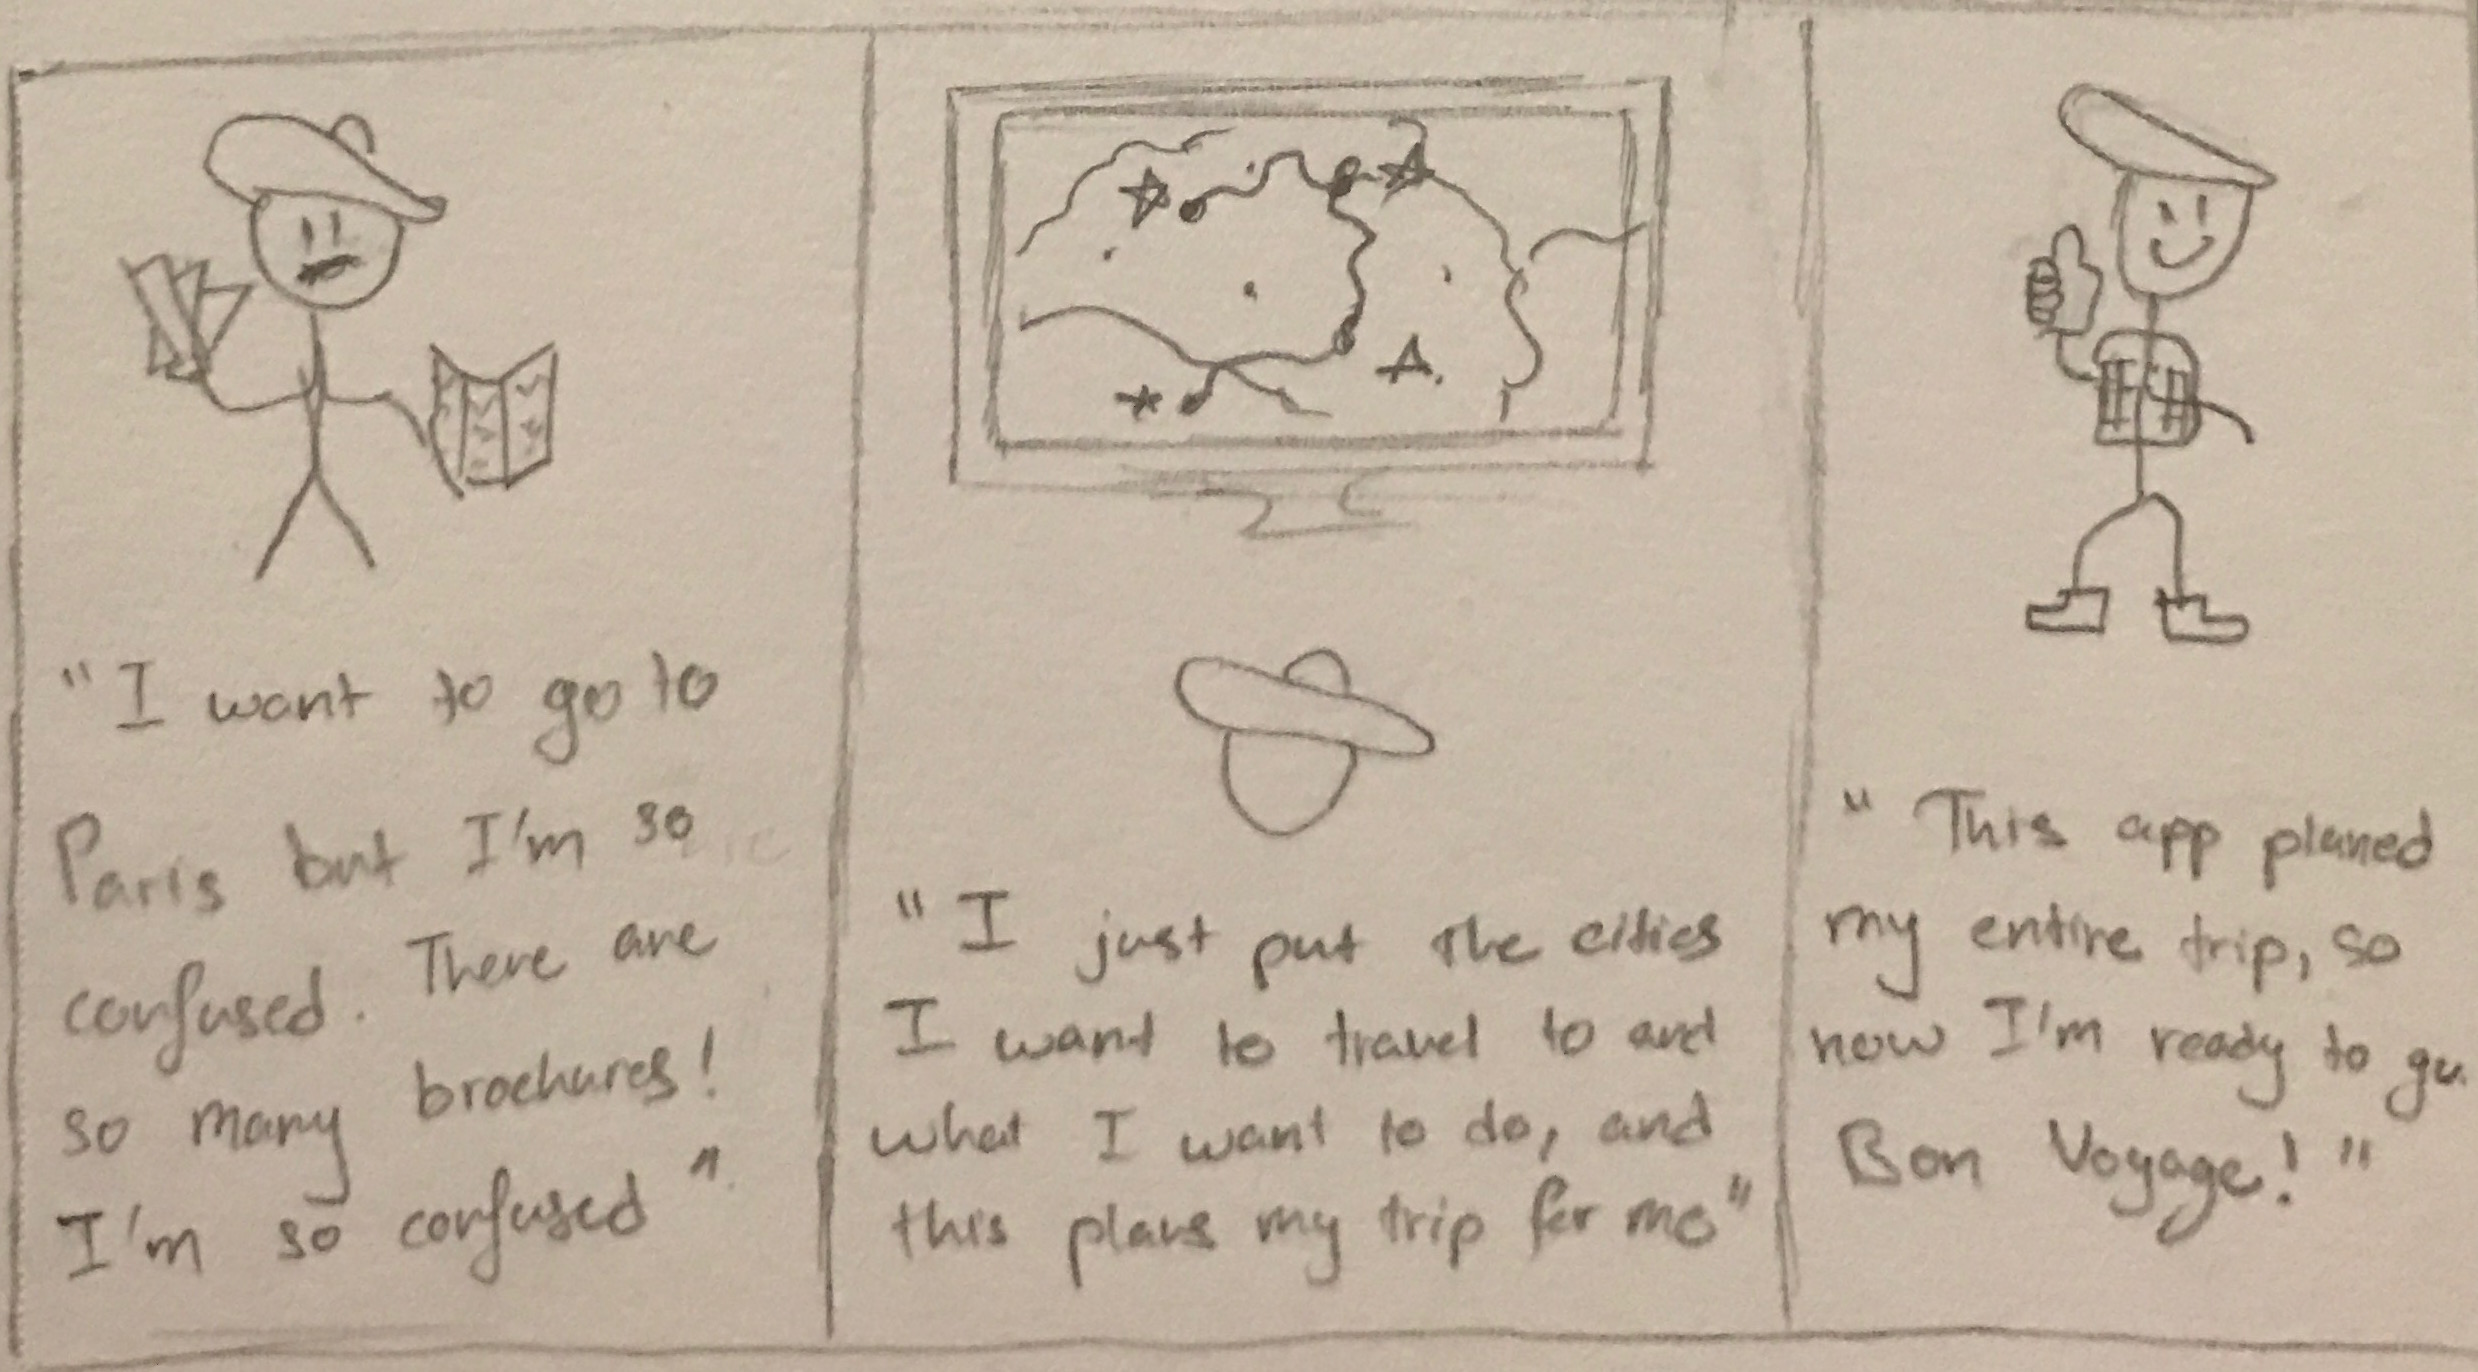 "I want to go to
Paris but I'm so
confused. There are
so many brochures!
I'm so confused".
"I just put the cities
I want to travel to and
what I want to do, and
this plans my trip for me"
"This app planed
my entire trip, so
now I'm ready to go.
Bon Voyage!"